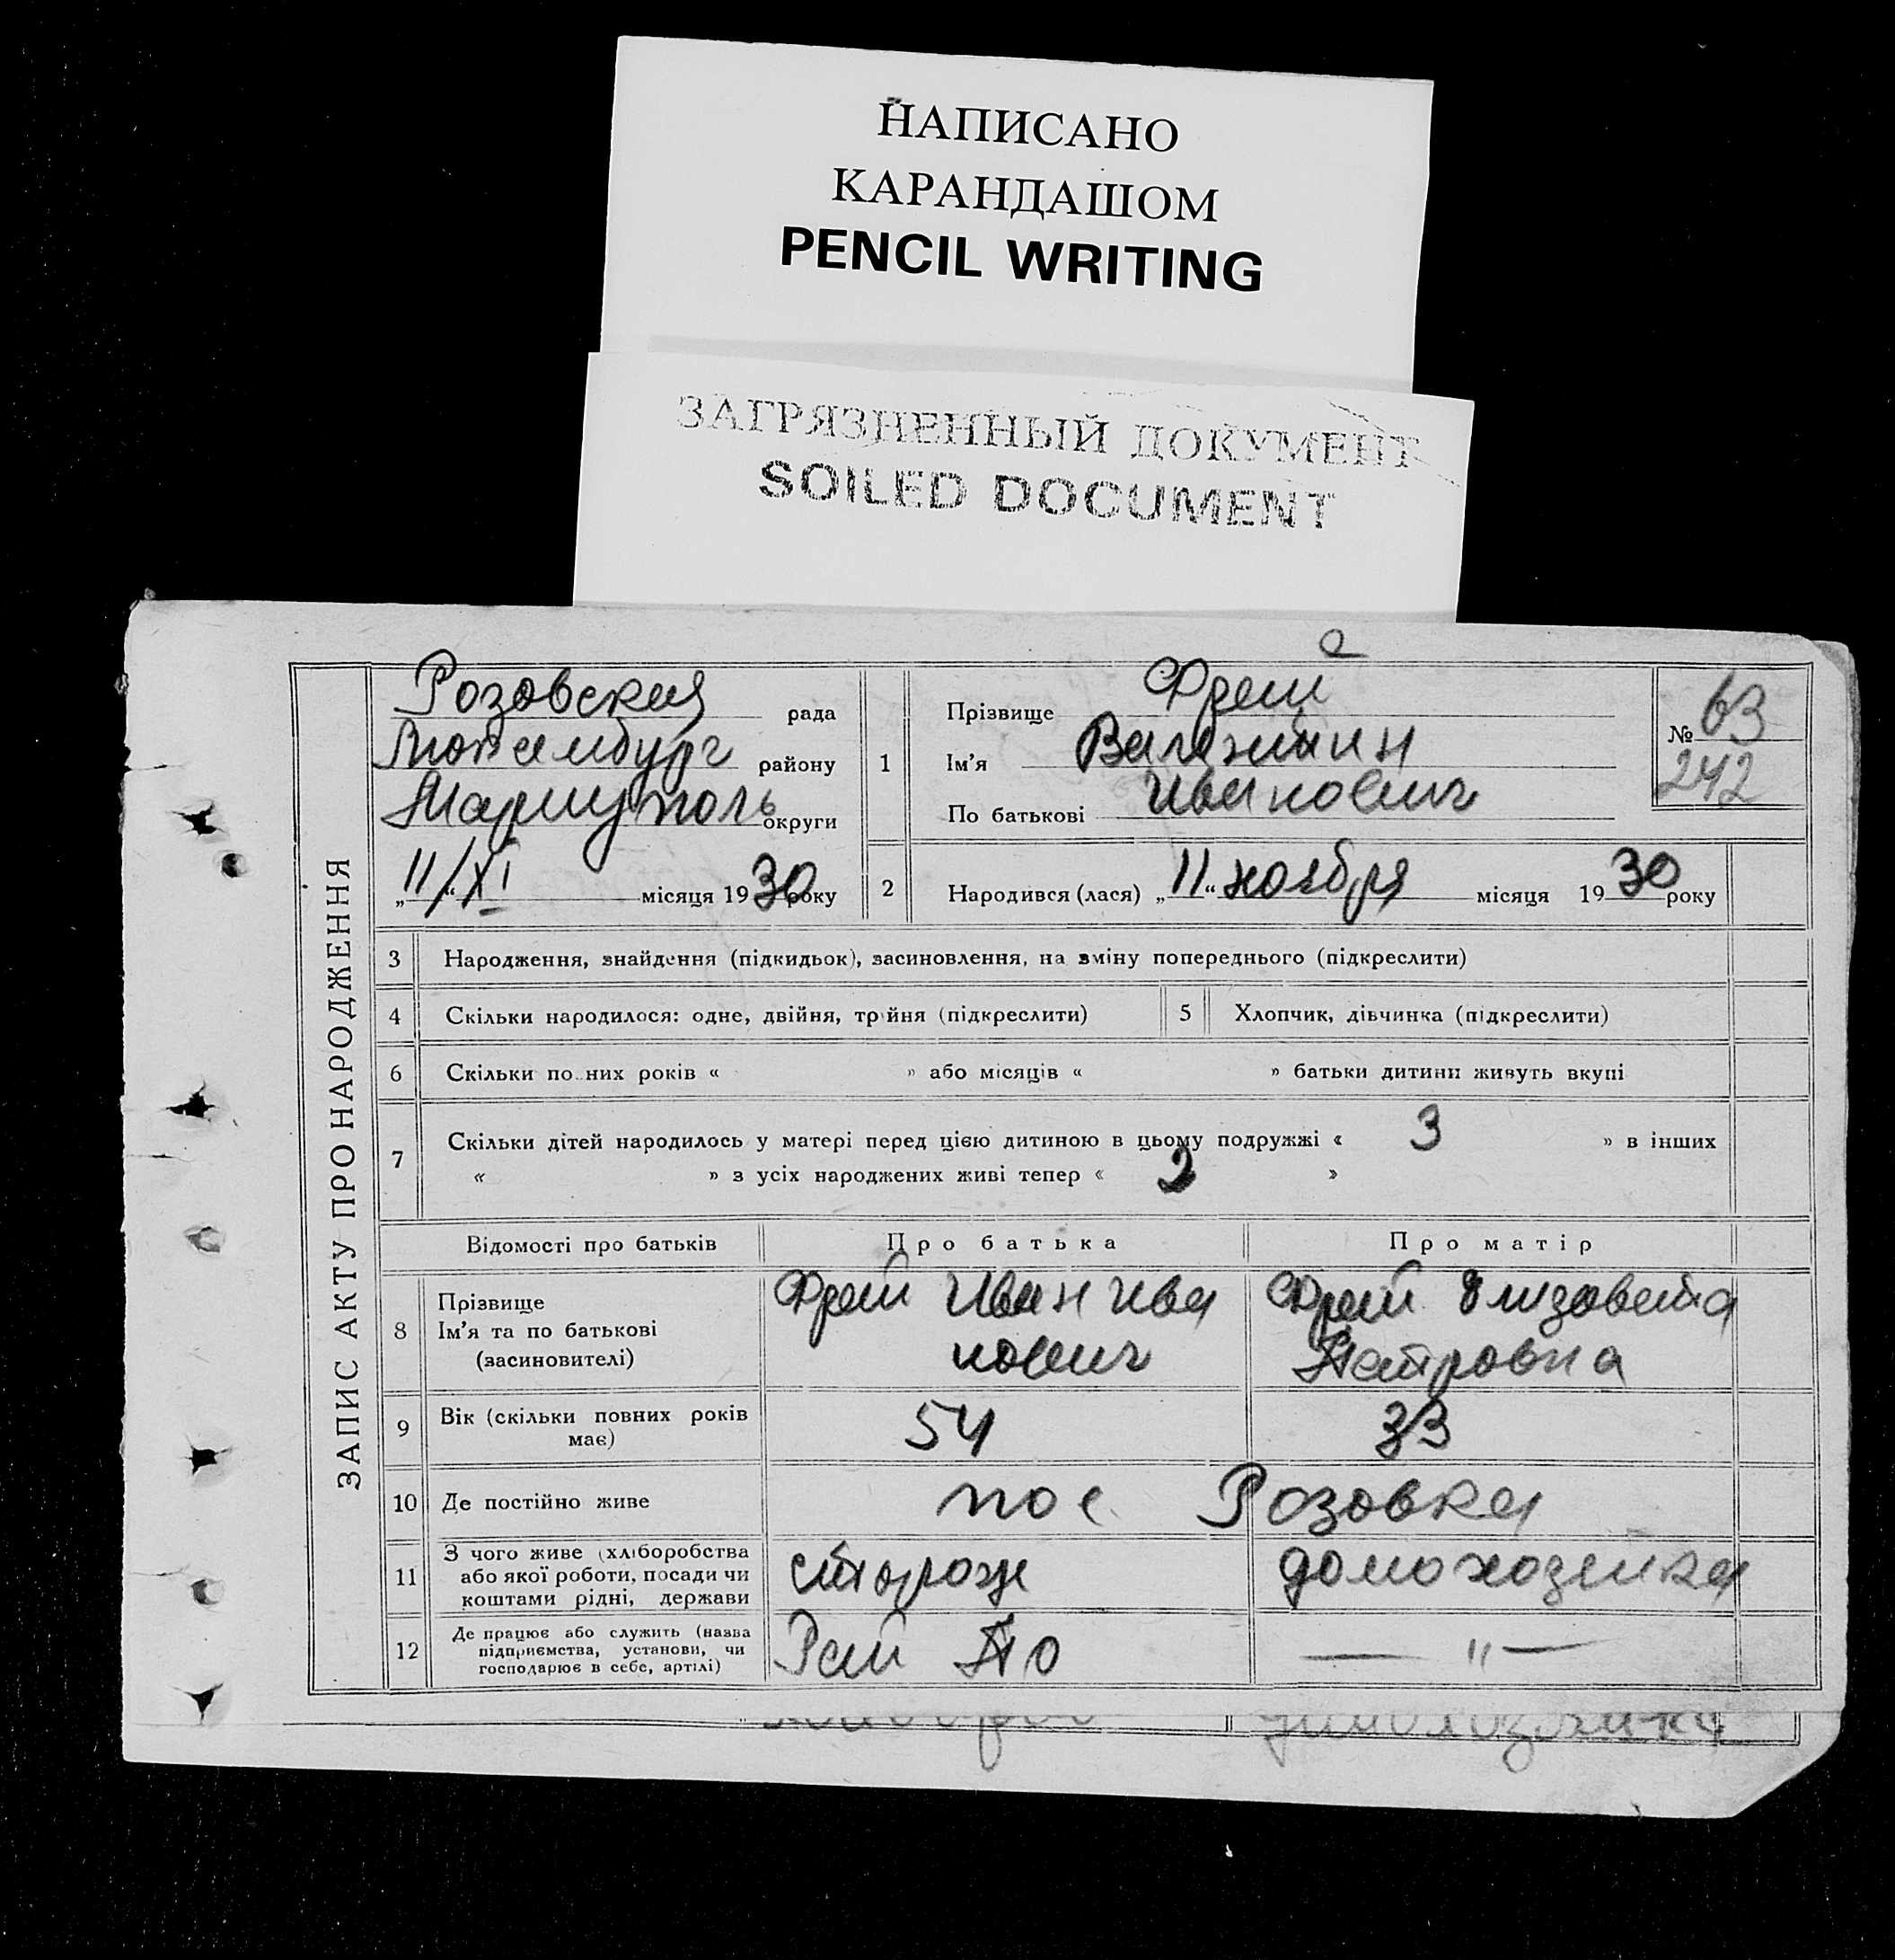 НАПИСАНО
КАРАНДАШОМ
PENCIL WRITING
ЗАГРЯЗНЕННЫЙ ДОКУМЕНТ
SOILED DOCUMENT
ЗАПИС АКТУ ПРО НАРОДЖЕННЯ
Розовская рада
району
Мариуполь округи
„11/“ XI місяця 1930 року
1
Прізвище Фрей
Ім’я Валентин
По батькові Иванович
№ 63
242
2 Народився (лася) „11“ ноября місяця 1930 року
3 Народження, знайдення (підкидьок), засиновлення, на зміну попереднього (підкреслити)
4 Скільки народилося: одне, двійня, трійня (підкреслити)
5 Хлопчик, дівчинка (підкреслити)
6 Скільки повних років « » або місяців « » батьки дитини живуть вкупі
7 Скільки дітей народилось у матері перед цією дитиною в цьому подружжі « 3 » в інших
« » з усіх народжених живі тепер « 2 »
Відомості про батьків Про батька Про матір
8 Прізвище
Ім’я та по батькові
(засиновителі)
Фрей Иван Ива
нович
Фрей Елизавета
Петровна
9 Вік (скільки повних років
має)
54 33
10 Де постійно живе пос. Розовка
11 З чого живе (хліборобства
або якої роботи, посади чи
коштами рідні, держави
сторож домохозейка
12 Де працює або служить (назва
підприємства, установи, чи
господарює в себе, артілі)
Рай ПО — " —